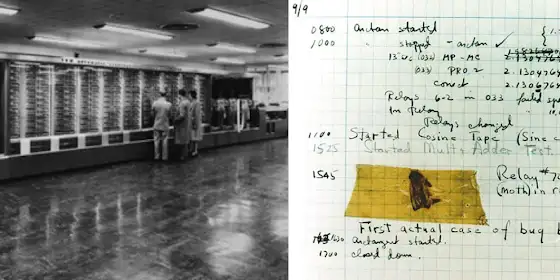 9/9
0800 antan started
1000 " stopped - antan ✓
13"uc (032) MP-MC
(033) PRO 2 2.1304764
conect 2.1306764
Relays 6-2 in 033 failed
in Relay
Relays changed
1100 Started Cosine Tape (Sine
1525 Started Mult+ Adder Test
1545 Relay #70
(moth) in r
First actual case of bug b
antangent started.
1700 closed down.